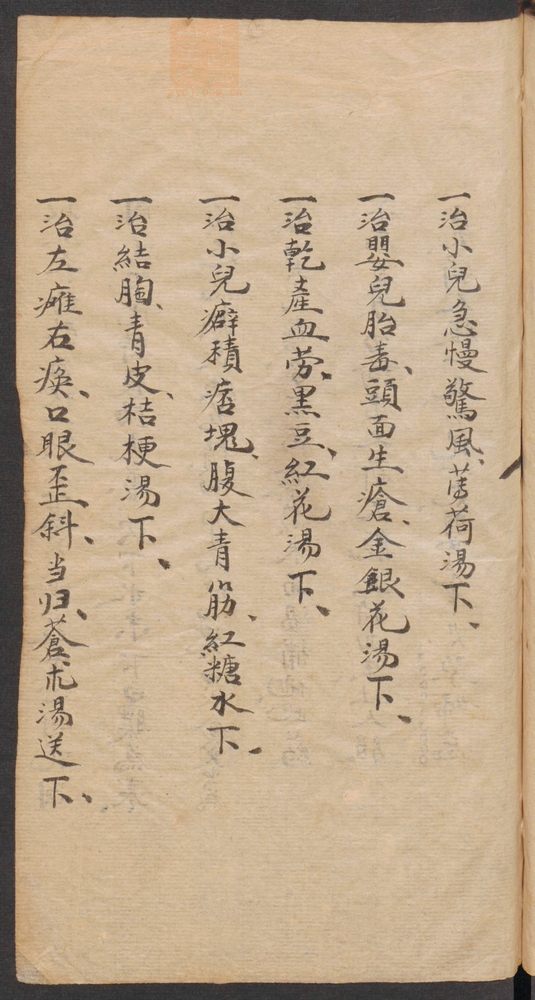 一治小兒急慢驚風、薄荷湯下、
一治嬰兒胎毒、頭面生瘡、金銀花湯下、
一治乾產血勞、黑豆、紅花湯下、
一治小兒癖積痞塊、腹大青筋、紅糖水下、
一治結胸、青皮、桔梗湯下、
一治左癱右瘓、口眼歪斜、当归、蒼朮湯送下、